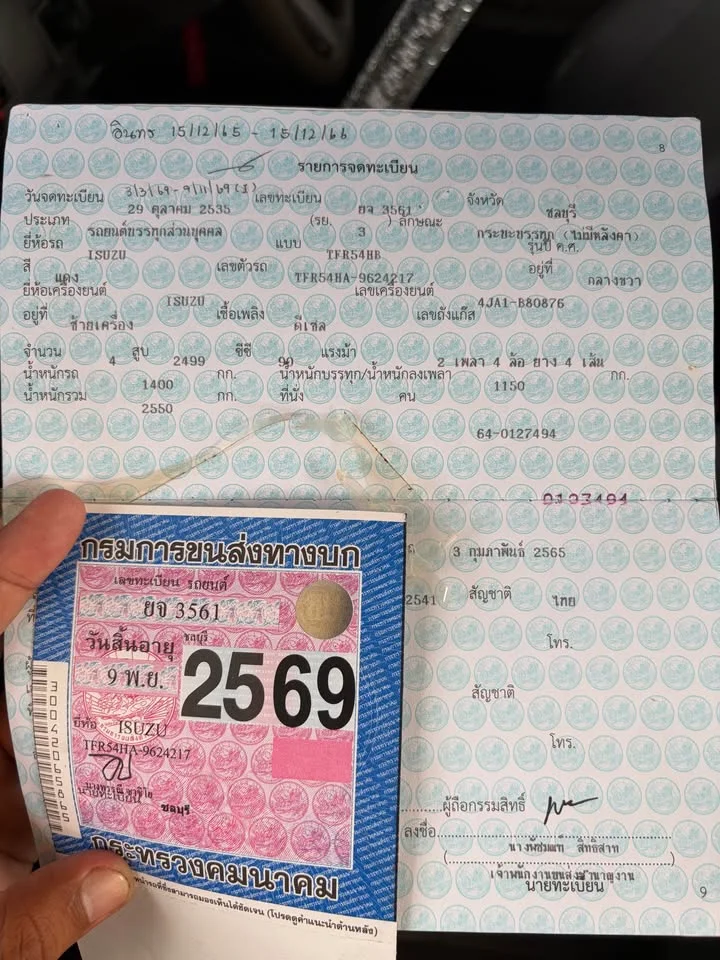 อินทร 15/12/65 - 15/12/66
8
รายการจดทะเบียน
3/3/69-9/11/69
วันจดทะเบียน 29 ตุลาคม 2535 เลขทะเบียน ยจ 3561 จังหวัด ชลบุรี
ประเภท รถยนต์บรรทุกส่วนบุคคล (รย. 3 ) ลักษณะ กระบะบรรทุก (ไม่มีหลังคา)
ยี่ห้อรถ ISUZU แบบ TFR54HB รุ่นปี ค.ศ.
สี แดง เลขตัวรถ TFR54HA-9624217 อยู่ที่ กลางขวา
ยี่ห้อเครื่องยนต์ ISUZU เลขเครื่องยนต์ 4JA1-B80876
อยู่ที่ ซ้ายเครื่อง เชื้อเพลิง ดีเซล เลขถังแก๊ส
จำนวน 4 สูบ 2499 ซีซี 90 แรงม้า 2 เพลา 4 ล้อ ยาง 4 เส้น
น้ำหนักรถ 1400 กก. น้ำหนักบรรทุก/น้ำหนักลงเพลา 1150 กก.
น้ำหนักรวม 2550 กก. ที่นั่ง คน
64-0127494
0193494
3 กุมภาพันธ์ 2565
2541 สัญชาติ ไทย
โทร.
สัญชาติ
โทร.
ผู้ถือกรรมสิทธิ์
ลงชื่อ
เจ้าพนักงานขนส่งชำนาญงาน
นายทะเบียน
9
กรมการขนส่งทางบก
เลขทะเบียน รถยนต์
ยจ 3561
ชลบุรี
วันสิ้นอายุ
9 พ.ย. 2569
ยี่ห้อ ISUZU
TFR54HA-9624217
นายทะเบียน ชลบุรี
กระทรวงคมนาคม
หน้ารถที่ซึ่งสามารถมองเห็นได้ชัดเจน (โปรดดูคำแนะนำด้านหลัง)
30042065865